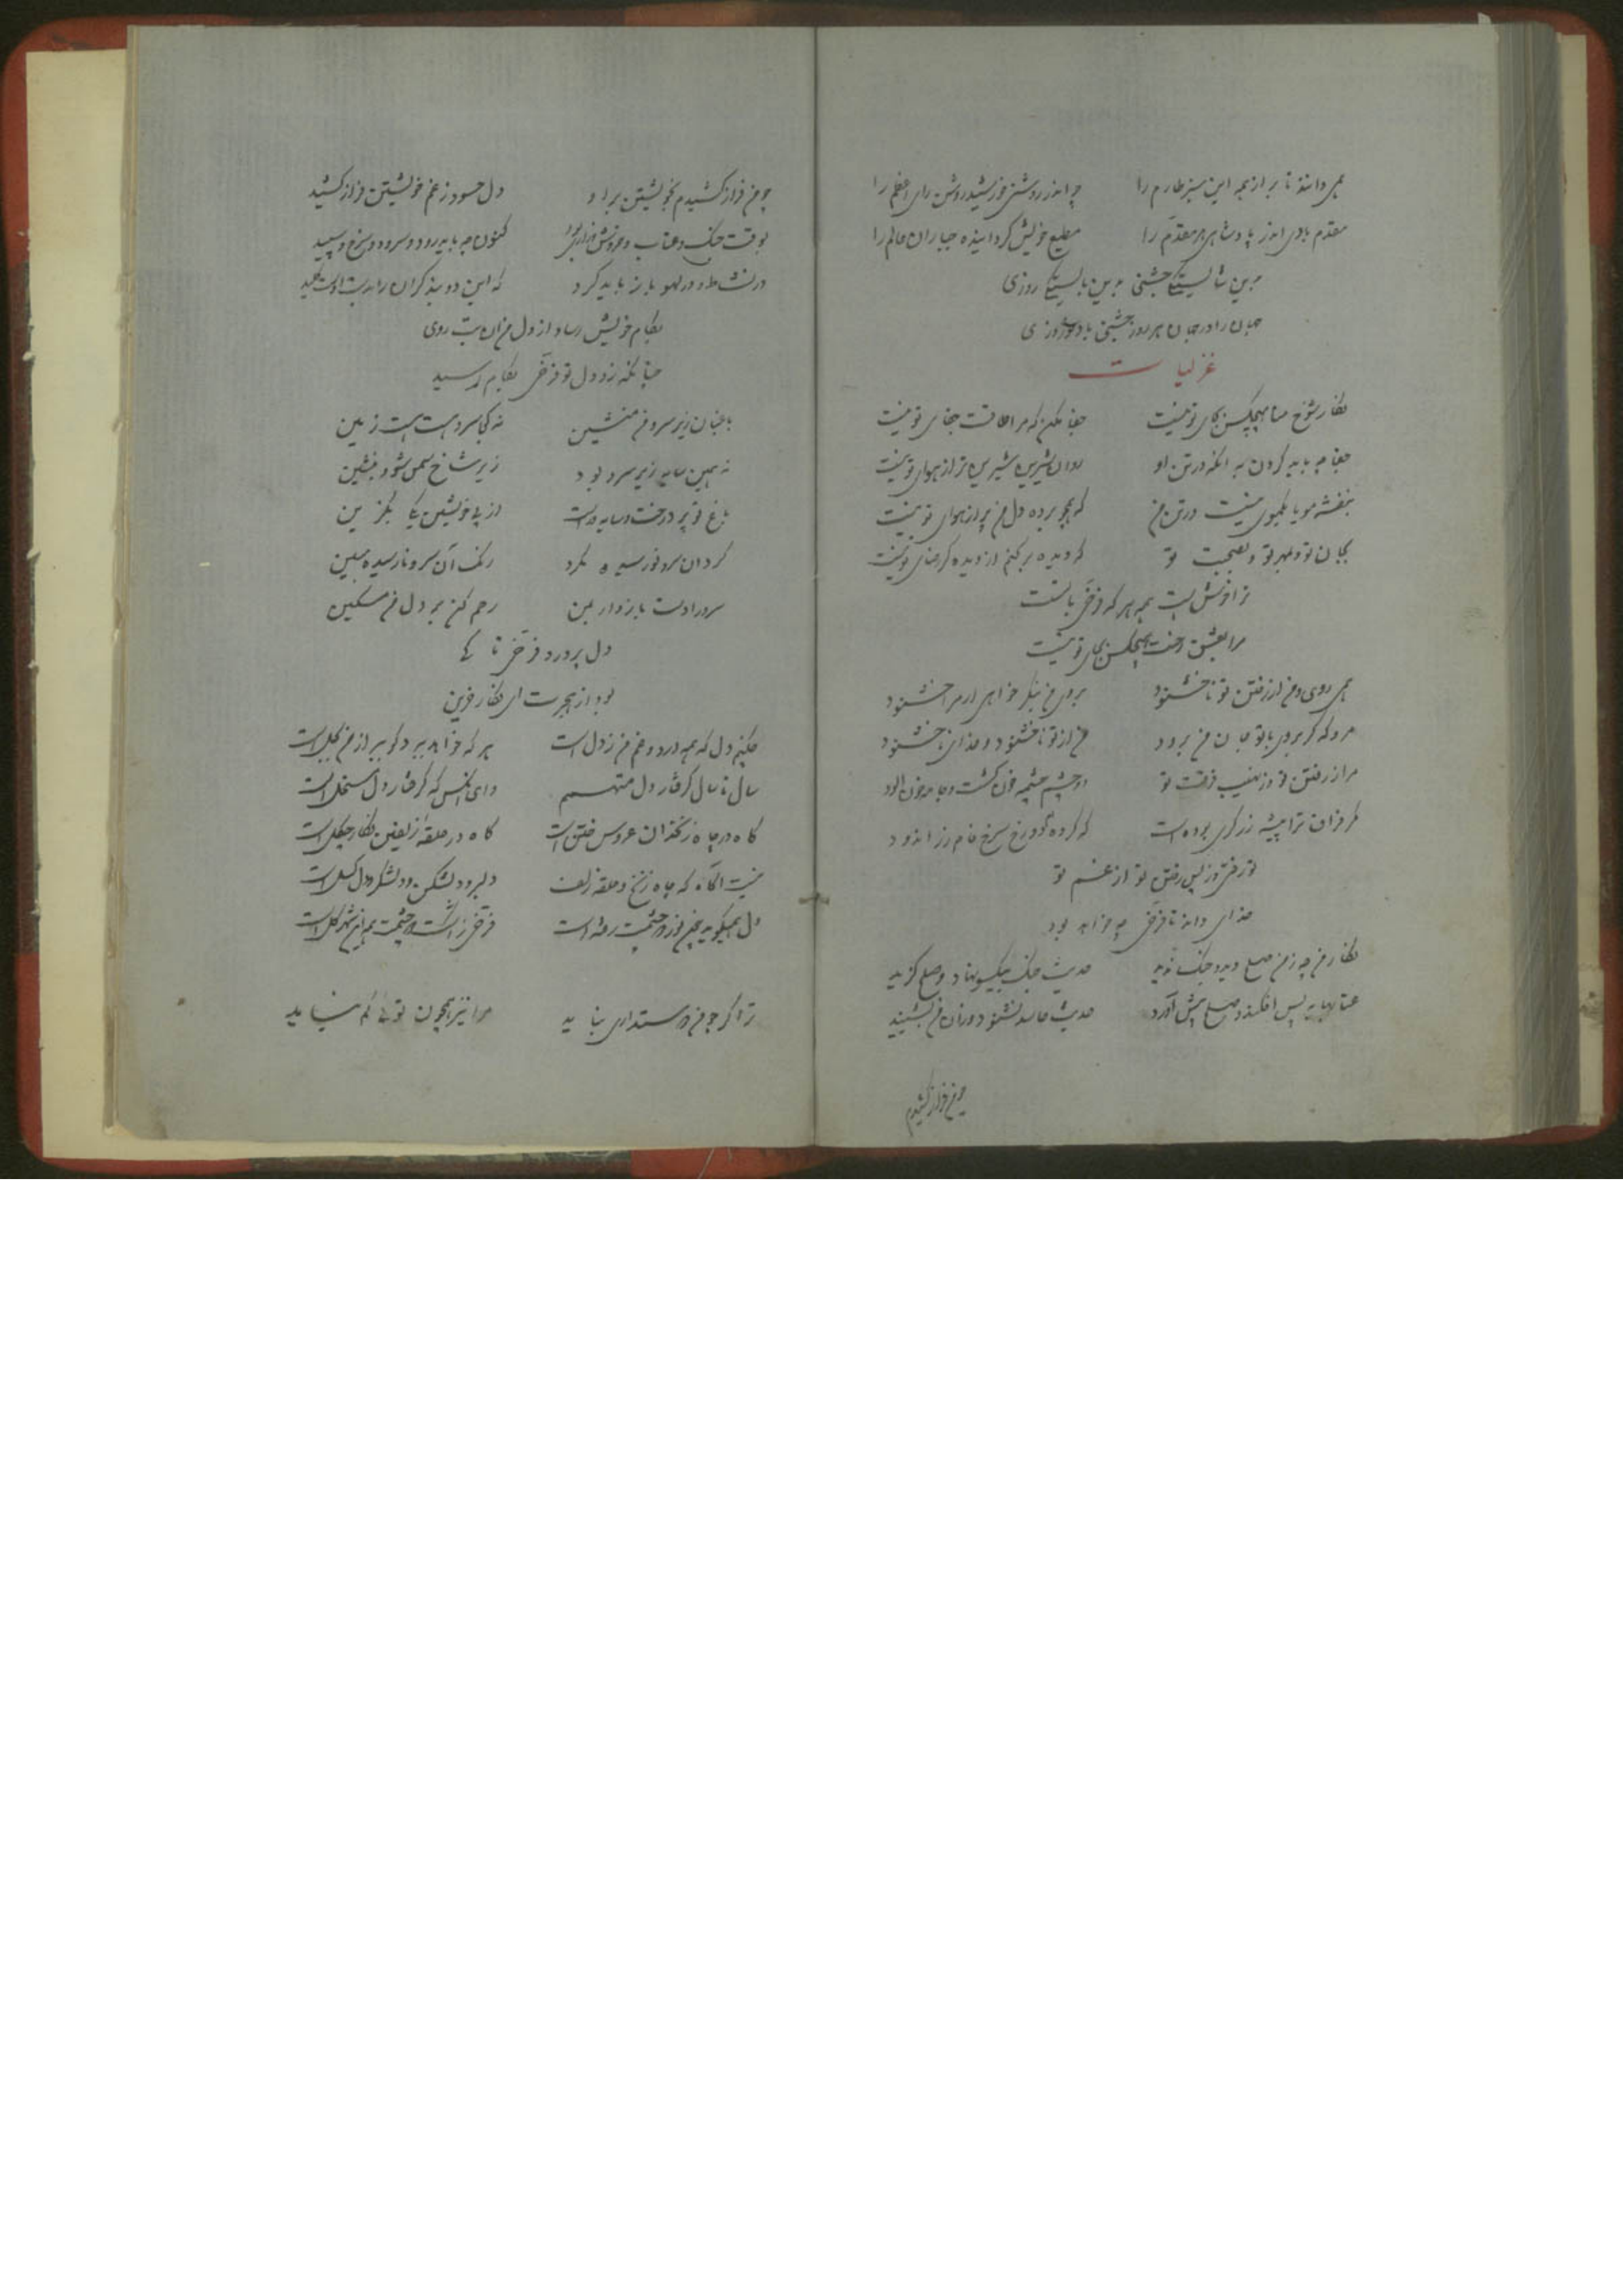 همی دانند تا برتر از همه این سبز طارم را چه اندر روشنی خورشید روشن رای اعظم را
مقدم بادی اندر پادشاهی هر مقدم را مطیع خویش گردانیده جباران عالم را
بدین شایستگی جشنی بدین بایستگی روزی
جهان را در جهان هر روز جشنی باد و نوروزی
غزلیات
نگار شوخ منا هیچکس بجای تو نیست جفا مکن که مرا طاقت جفای تو نیست
جفا چه باید کردن به آنکه در تن او روان شیرین شیرین تر از هوای تو نیست
بنفشه مویا یکموی نیست در تن من که همچو برده دل من پر از هوای تو نیست
بجان تو و بمهر تو و بصحبت تو که دیده برکنم ار دیده گر رضای تو نیست
هر که فرخی بایست
مرا بعشق هیچکس بجای تو نیست
همی روی و من از رفتن تو ناخشنود بروی من نگر خواهی ار مرا خشنود
مرو که گر بروی باتو جان من برود من از تو ناخشنود و خدای ناخشنود
مرا ز رفتن تو وز نهیب فرقت تو دو چشم چشمه خون گشت و جامه خون آلود
مگر فراق ترا پیشه زرگری بوده است که کرد دو رخ سرخ فام زر اندود
تو رفتی و ز پس رفتن تو از غم تو
خدای داند تا فرخی چه خواهد بود
نگار من چه ز من صلح دید و جنگ ندید حدیث جنگ بیکسو نهاد و صلح گزید
عتابها به پس افکند و صلح پیش آورد حدیث حاسد نشنود و زان من بشنید
چو من فراز کشیدم
چو من فراز کشیدم بخویشتن بر او دل حسود ز غم خویشتن فراز کشید
بوقت جنگ و عتاب و خروش کنون چه باید رود و سرود و سرخ و سپید
در نشاط و در لهو باز باید کرد که این دو بند گران را بدست اوست کلید
بکام خویش رساد از دل من آن بت روی
چنانکه زو دل تو فرخی بکام رسید
باغبان زیر سرو من منشین نه کجا سرو هست هست زمین
نه همین سایه زیر سرو بود زیر شاخ سمن شو و بنشین
باغ تو پر درخت و سایه ور است از پی خویشتن یکی بگزین
گرد آن سرو نورسیده مگرد رنگ آن سرو نارسیده مبین
سرو را دست باز دار بمن رحم کن بر دل من مسکین
دل پر درد فرخی تا کی
بود از هجرت ای نگار غمین
چکنم دل که همه درد و غم من ز دل است هر که خواهد ببرد گو ببر از من بحل است
سال تا سال گرفتار دل متهمم وای آنکس که گرفتار دل مستحل است
گاه در چاه زنخدان عروس ختن است گاه در حلقه زلفین نگار چگل است
نیست آگاه که چاه زنخ و حلقه زلف دلبر و دلشکن و دلشکر و دل گسل است
دل همیگوید
ترا گر چو من دوستداری بباید مرا نیز همچون تو کم نیاید